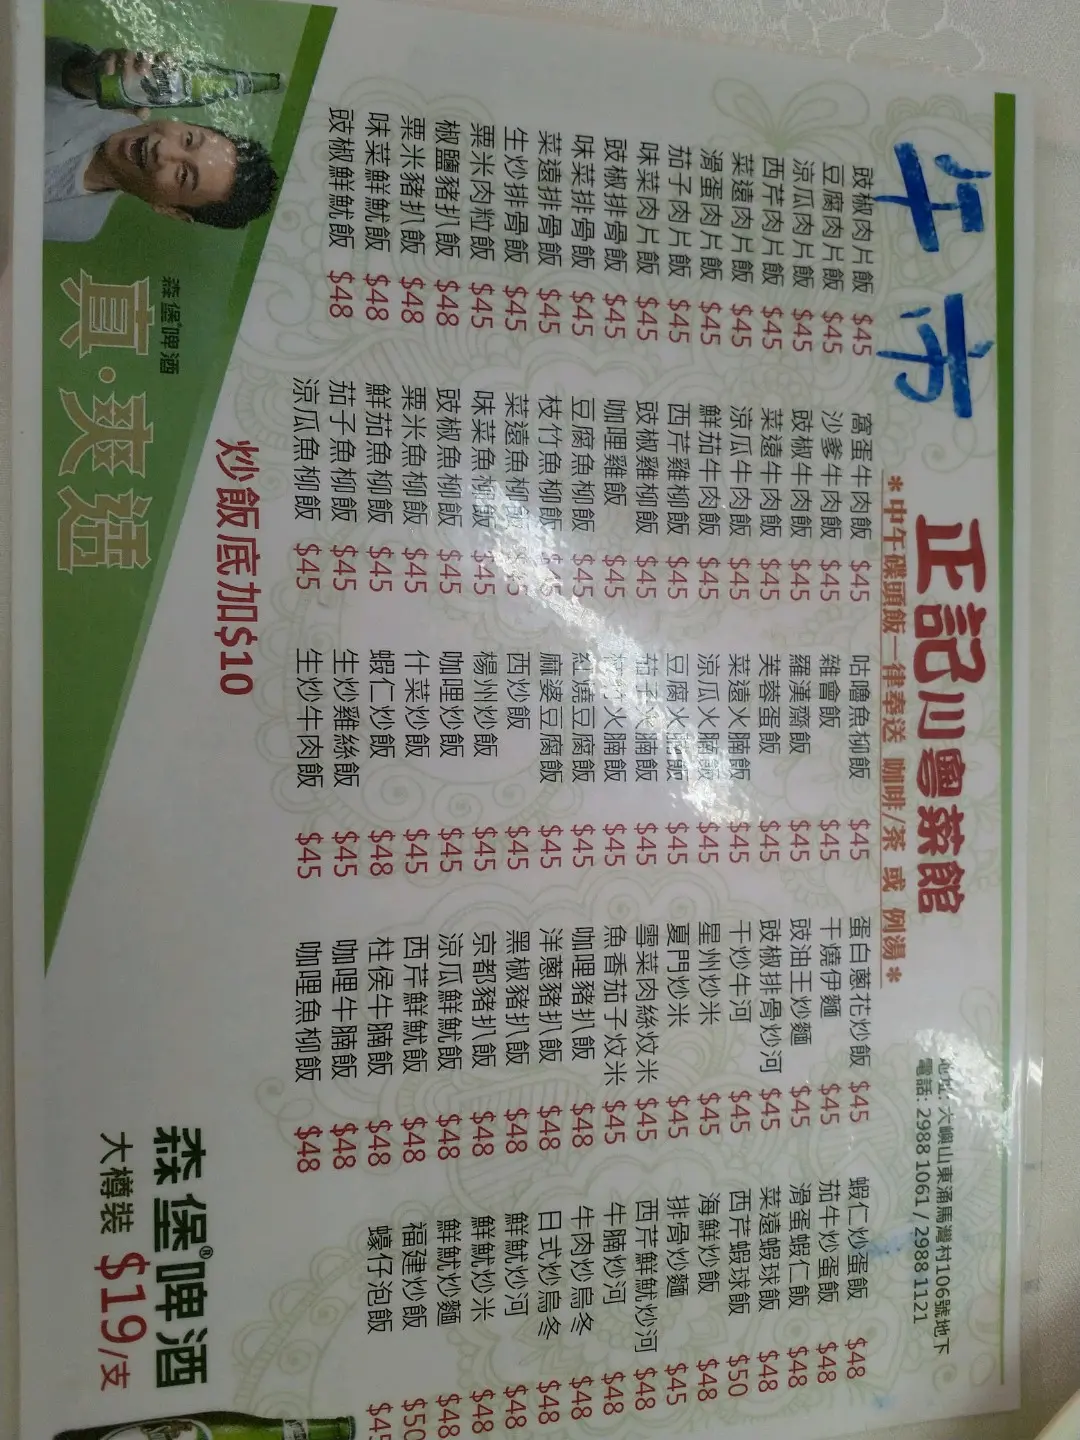 午市
正記川粵菜館
*中午碟頭飯一律奉送 咖啡/茶 或 例湯*
地址: 大嶼山東涌馬灣村106號地下
電話: 2988 1061 / 2988 1121
豉椒肉片飯 $45
豆腐肉片飯 $45
涼瓜肉片飯 $45
西芹肉片飯 $45
菜遠肉片飯 $45
滑蛋肉片飯 $45
茄子肉片飯 $45
味菜肉片飯 $45
豉椒排骨飯 $45
味菜排骨飯 $45
菜遠排骨飯 $45
生炒排骨飯 $45
粟米肉粒飯 $45
椒鹽豬扒飯 $48
粟米豬扒飯 $48
味菜鮮魷飯 $48
豉椒鮮魷飯 $48
窩蛋牛肉飯 $45
沙爹牛肉飯 $45
豉椒牛肉飯 $45
菜遠牛肉飯 $45
涼瓜牛肉飯 $45
鮮茄牛肉飯 $45
西芹雞柳飯 $45
豉椒雞柳飯 $45
咖哩雞飯 $45
豆腐魚柳飯 $45
枝竹魚柳飯 $45
菜遠魚柳飯 $45
味菜魚柳飯 $45
豉椒魚柳飯 $45
粟米魚柳飯 $45
鮮茄魚柳飯 $45
茄子魚柳飯 $45
涼瓜魚柳飯 $45
咕嚕魚柳飯 $45
雜會飯 $45
羅漢齋飯 $45
芙蓉蛋飯 $45
菜遠火腩飯 $45
涼瓜火腩飯 $45
豆腐火腩飯 $45
茄子火腩飯 $45
枝竹火腩飯 $45
紅燒豆腐飯 $45
麻婆豆腐飯 $45
西炒飯 $45
楊州炒飯 $45
咖哩炒飯 $45
什菜炒飯 $45
蝦仁炒飯 $48
生炒雞絲飯 $45
生炒牛肉飯 $45
蛋白蔥花炒飯 $45
干燒伊麵 $45
豉油王炒麵 $45
豉椒排骨炒河 $45
干炒牛河 $45
星州炒米 $45
夏門炒米 $45
雪菜肉絲炆米 $45
魚香茄子炆米 $45
咖哩豬扒飯 $48
洋蔥豬扒飯 $48
黑椒豬扒飯 $48
京都豬扒飯 $48
涼瓜鮮魷飯 $48
西芹鮮魷飯 $48
柱侯牛腩飯 $48
咖哩牛腩飯 $48
咖哩魚柳飯 $48
蝦仁炒蛋飯 $48
茄牛炒蛋飯 $48
滑蛋蝦仁飯 $48
菜遠蝦球飯 $48
西芹蝦球飯 $50
海鮮炒飯 $48
排骨炒麵 $45
西芹鮮魷炒河 $48
牛腩炒河 $48
牛肉炒烏冬 $48
日式炒烏冬 $48
鮮魷炒河 $48
鮮魷炒米 $48
鮮魷炒麵 $48
福建炒飯 $50
蠔仔泡飯 $45
炒飯底加$10
森堡®啤酒
真·爽透
森堡®啤酒
大樽裝 $19/支